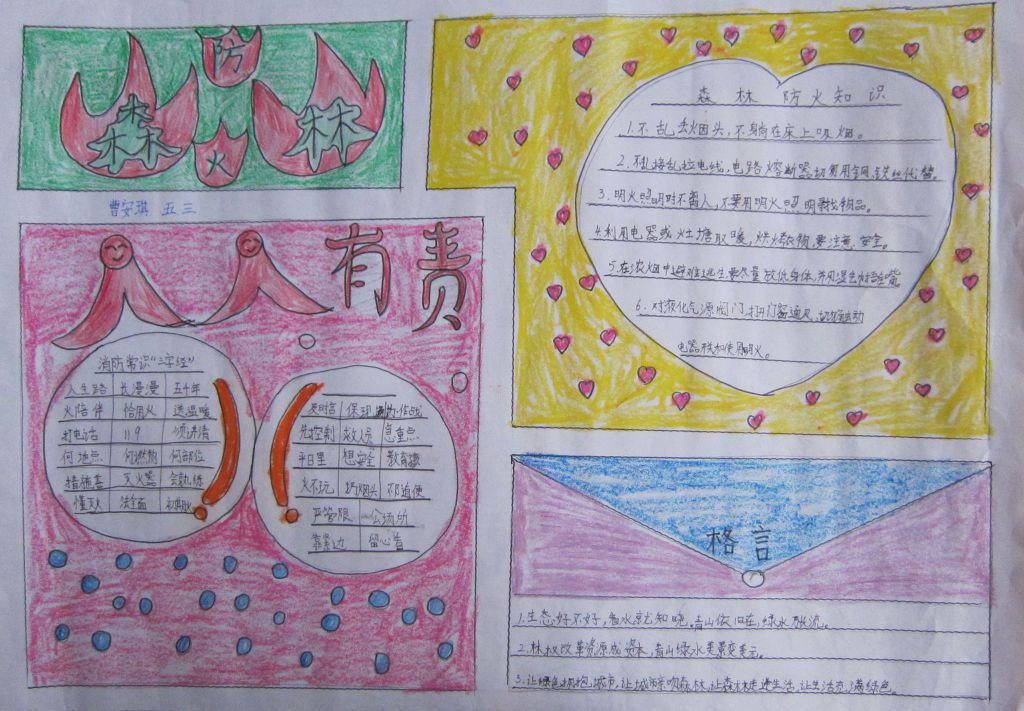 森 防 火 林
曹安琪 五三
人人有责
消防常识"三字经"
人生路 长漫漫 五十年
火陪伴 恰用火 送温暖
打电话 119 须讲清
何地点 何燃物 何部位
措施基 灭火器 会熟练
懂灭火 法全面
发时言 保现
先控制 救人员 急重点
平日里 想安全 教育
火不玩 扔烟头 不随便
严管限 公场所
靠窗边 留心看
森林防火知识
1.不乱丢烟头,不躺在床上吸烟。
2.不乱接乱拉电线,电路熔断器切勿用铜、铁丝代替。
3.明火照明时不离人,不要用明火照明寻找物品。
4.利用电器或灶塘取暖,烘烤衣物要注意安全。
5.在浓烟中避难逃生要尽量放低身体,并用湿毛巾捂嘴
6.对液化气源阀门,打开门窗通风,切勿触动
电器开关和使用明火。
格言
1.生态好不好,看水就知晓。青山依旧在,绿水长流。
2.林权改革资源成资本,青山绿水美景变美元。
3.让绿色拥抱城市,让城市亲吻森林,让森林走进生活,让生活充满绿色。